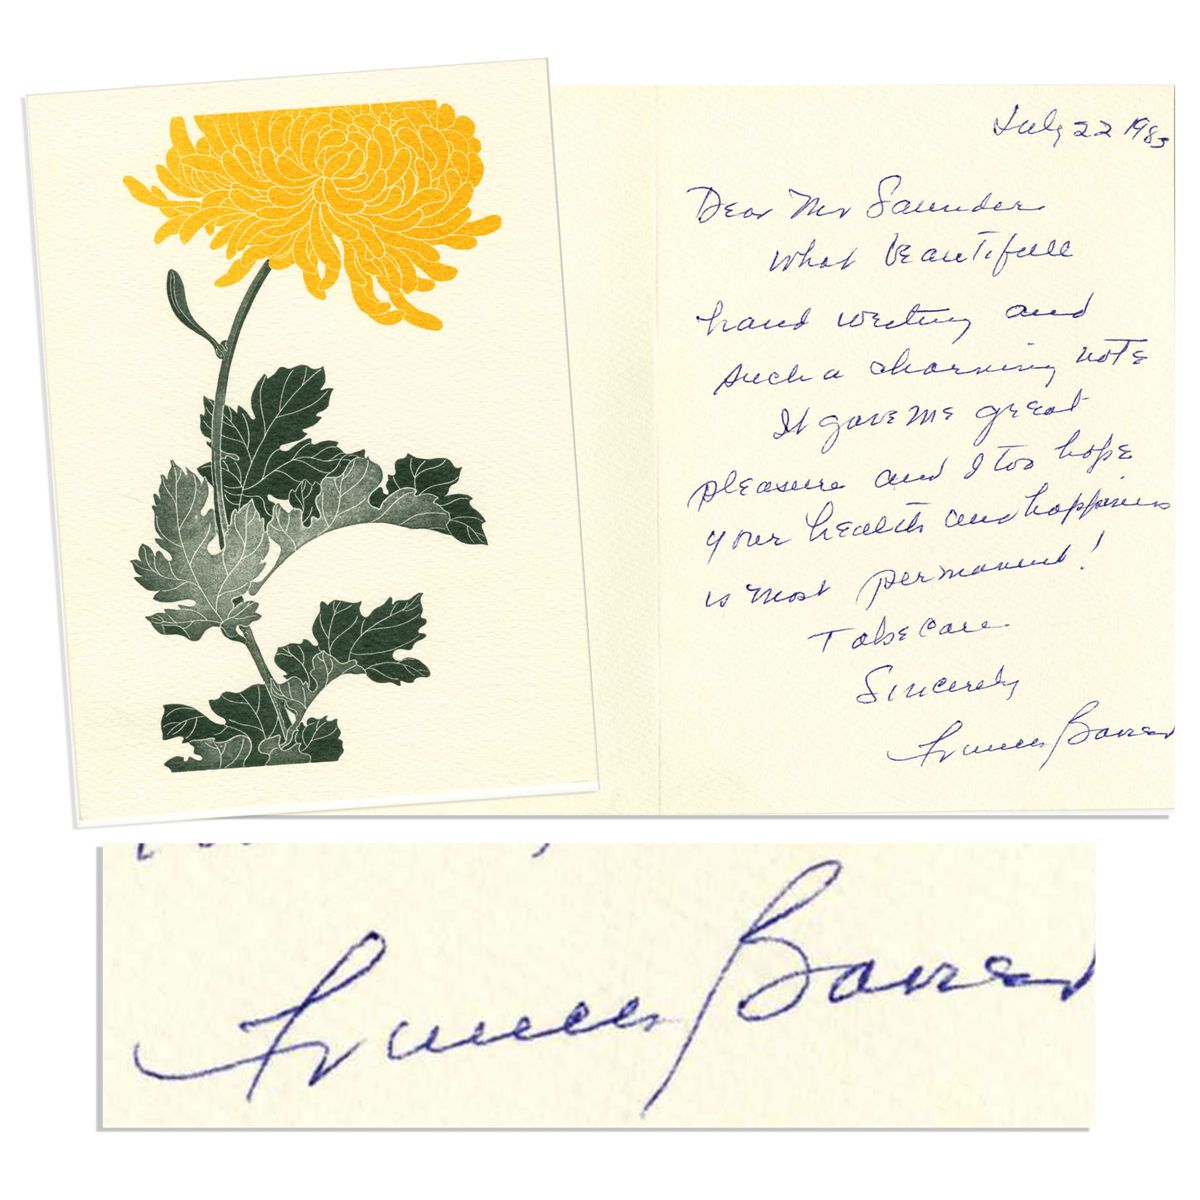 July 22 1983
Dear Mr Saunder
what beautifull
hand writing and
such a charming note
It gave me great
pleasure and I too hope
your health and happiness
is most permanent!
Take care
Sincerely
Frances Bavier
Frances Bavier